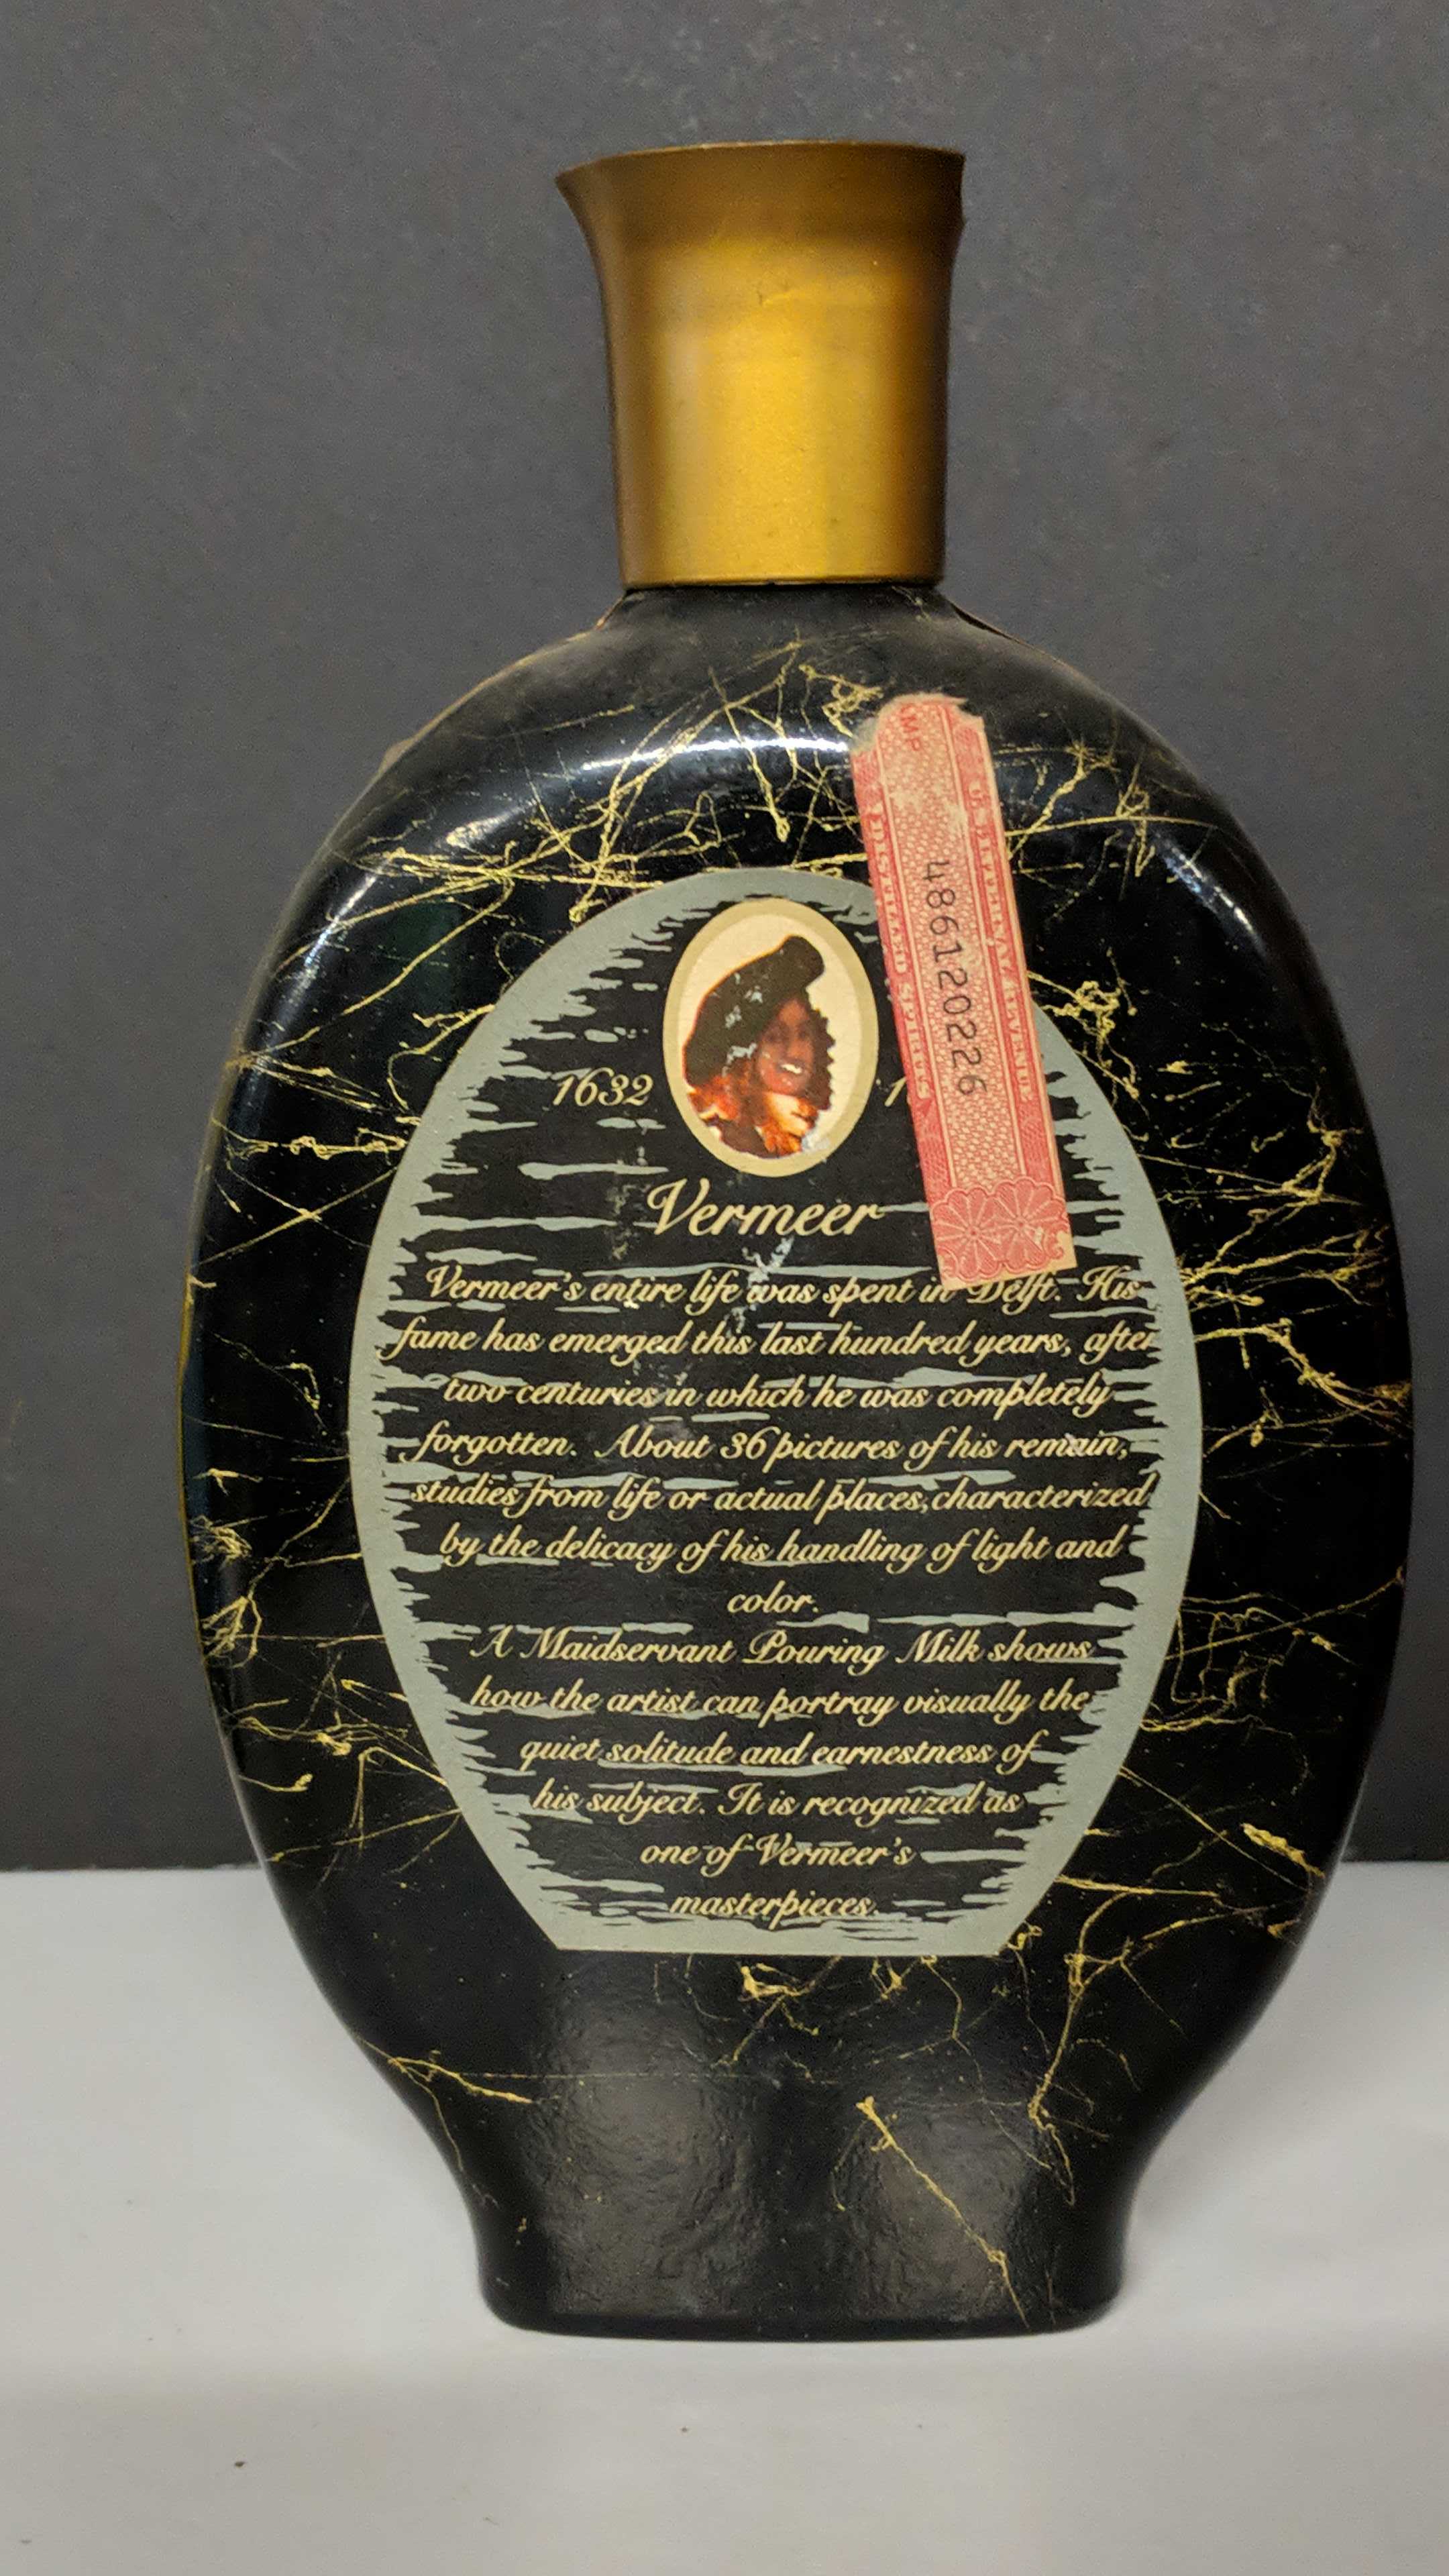 1632
Vermeer
Vermeer's entire life was spent in Delft. His
fame has emerged this last hundred years, after
two centuries in which he was completely
forgotten. About 36 pictures of his remain,
studies from life or actual places, characterized
by the delicacy of his handling of light and
color.
A Maidservant Pouring Milk shows
how the artist can portray visually the
quiet solitude and earnestness of
his subject. It is recognized as
one of Vermeer's
masterpieces.
U.S. INTERNAL REVENUE
486120226
DISTILLED SPIRITS